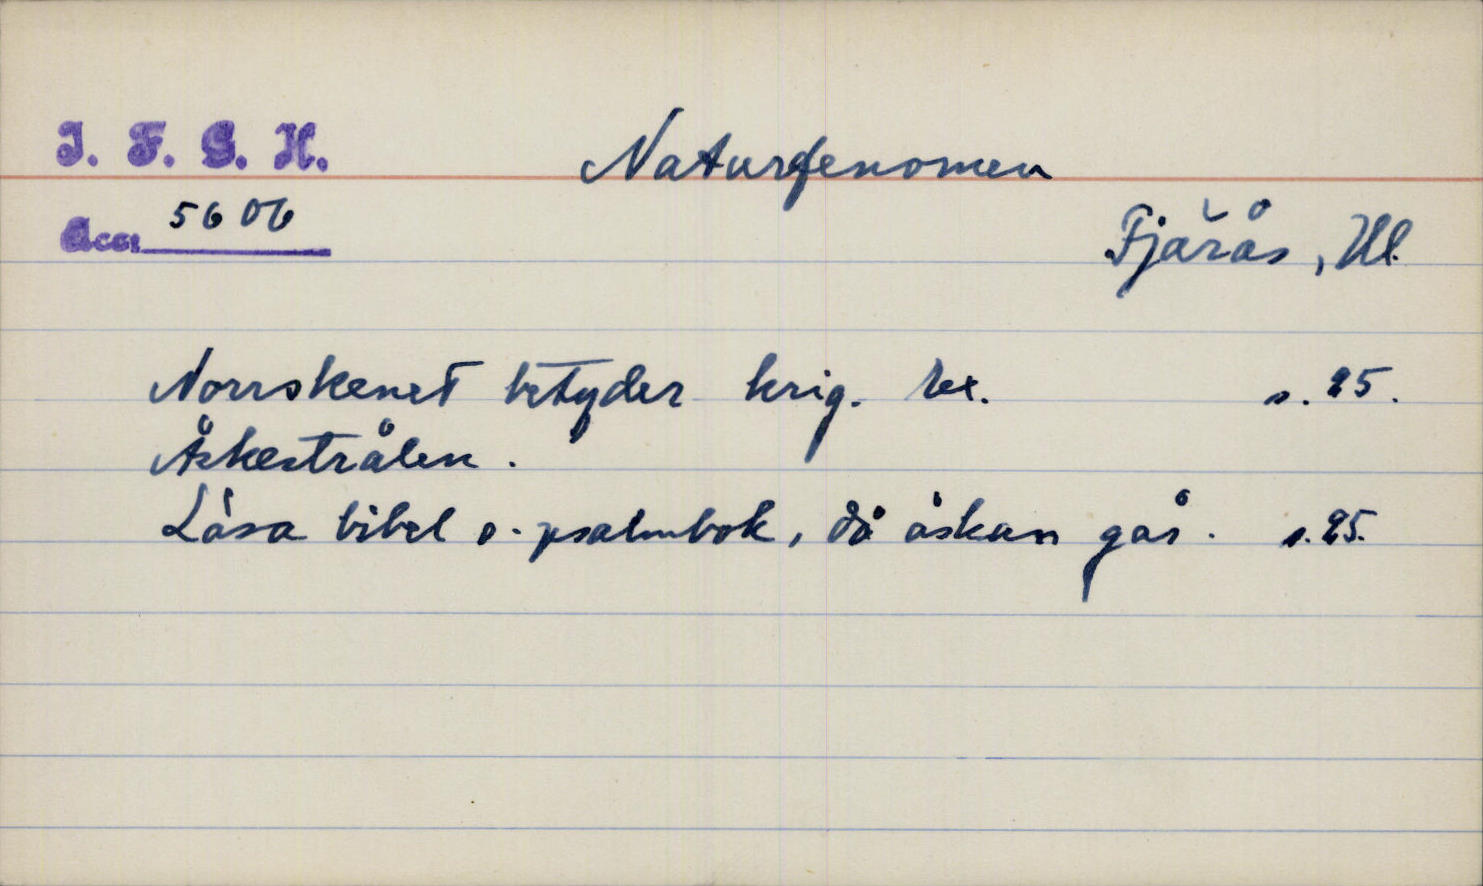 I. F. G. H.
Naturfenomen
Acc: 5606
Fjärås, Hl.
Norrskenet betyder krig. Ex. s. 25.
Åskestrålen.
Läsa bibel o. psalmbok, då åskan går. s. 25.